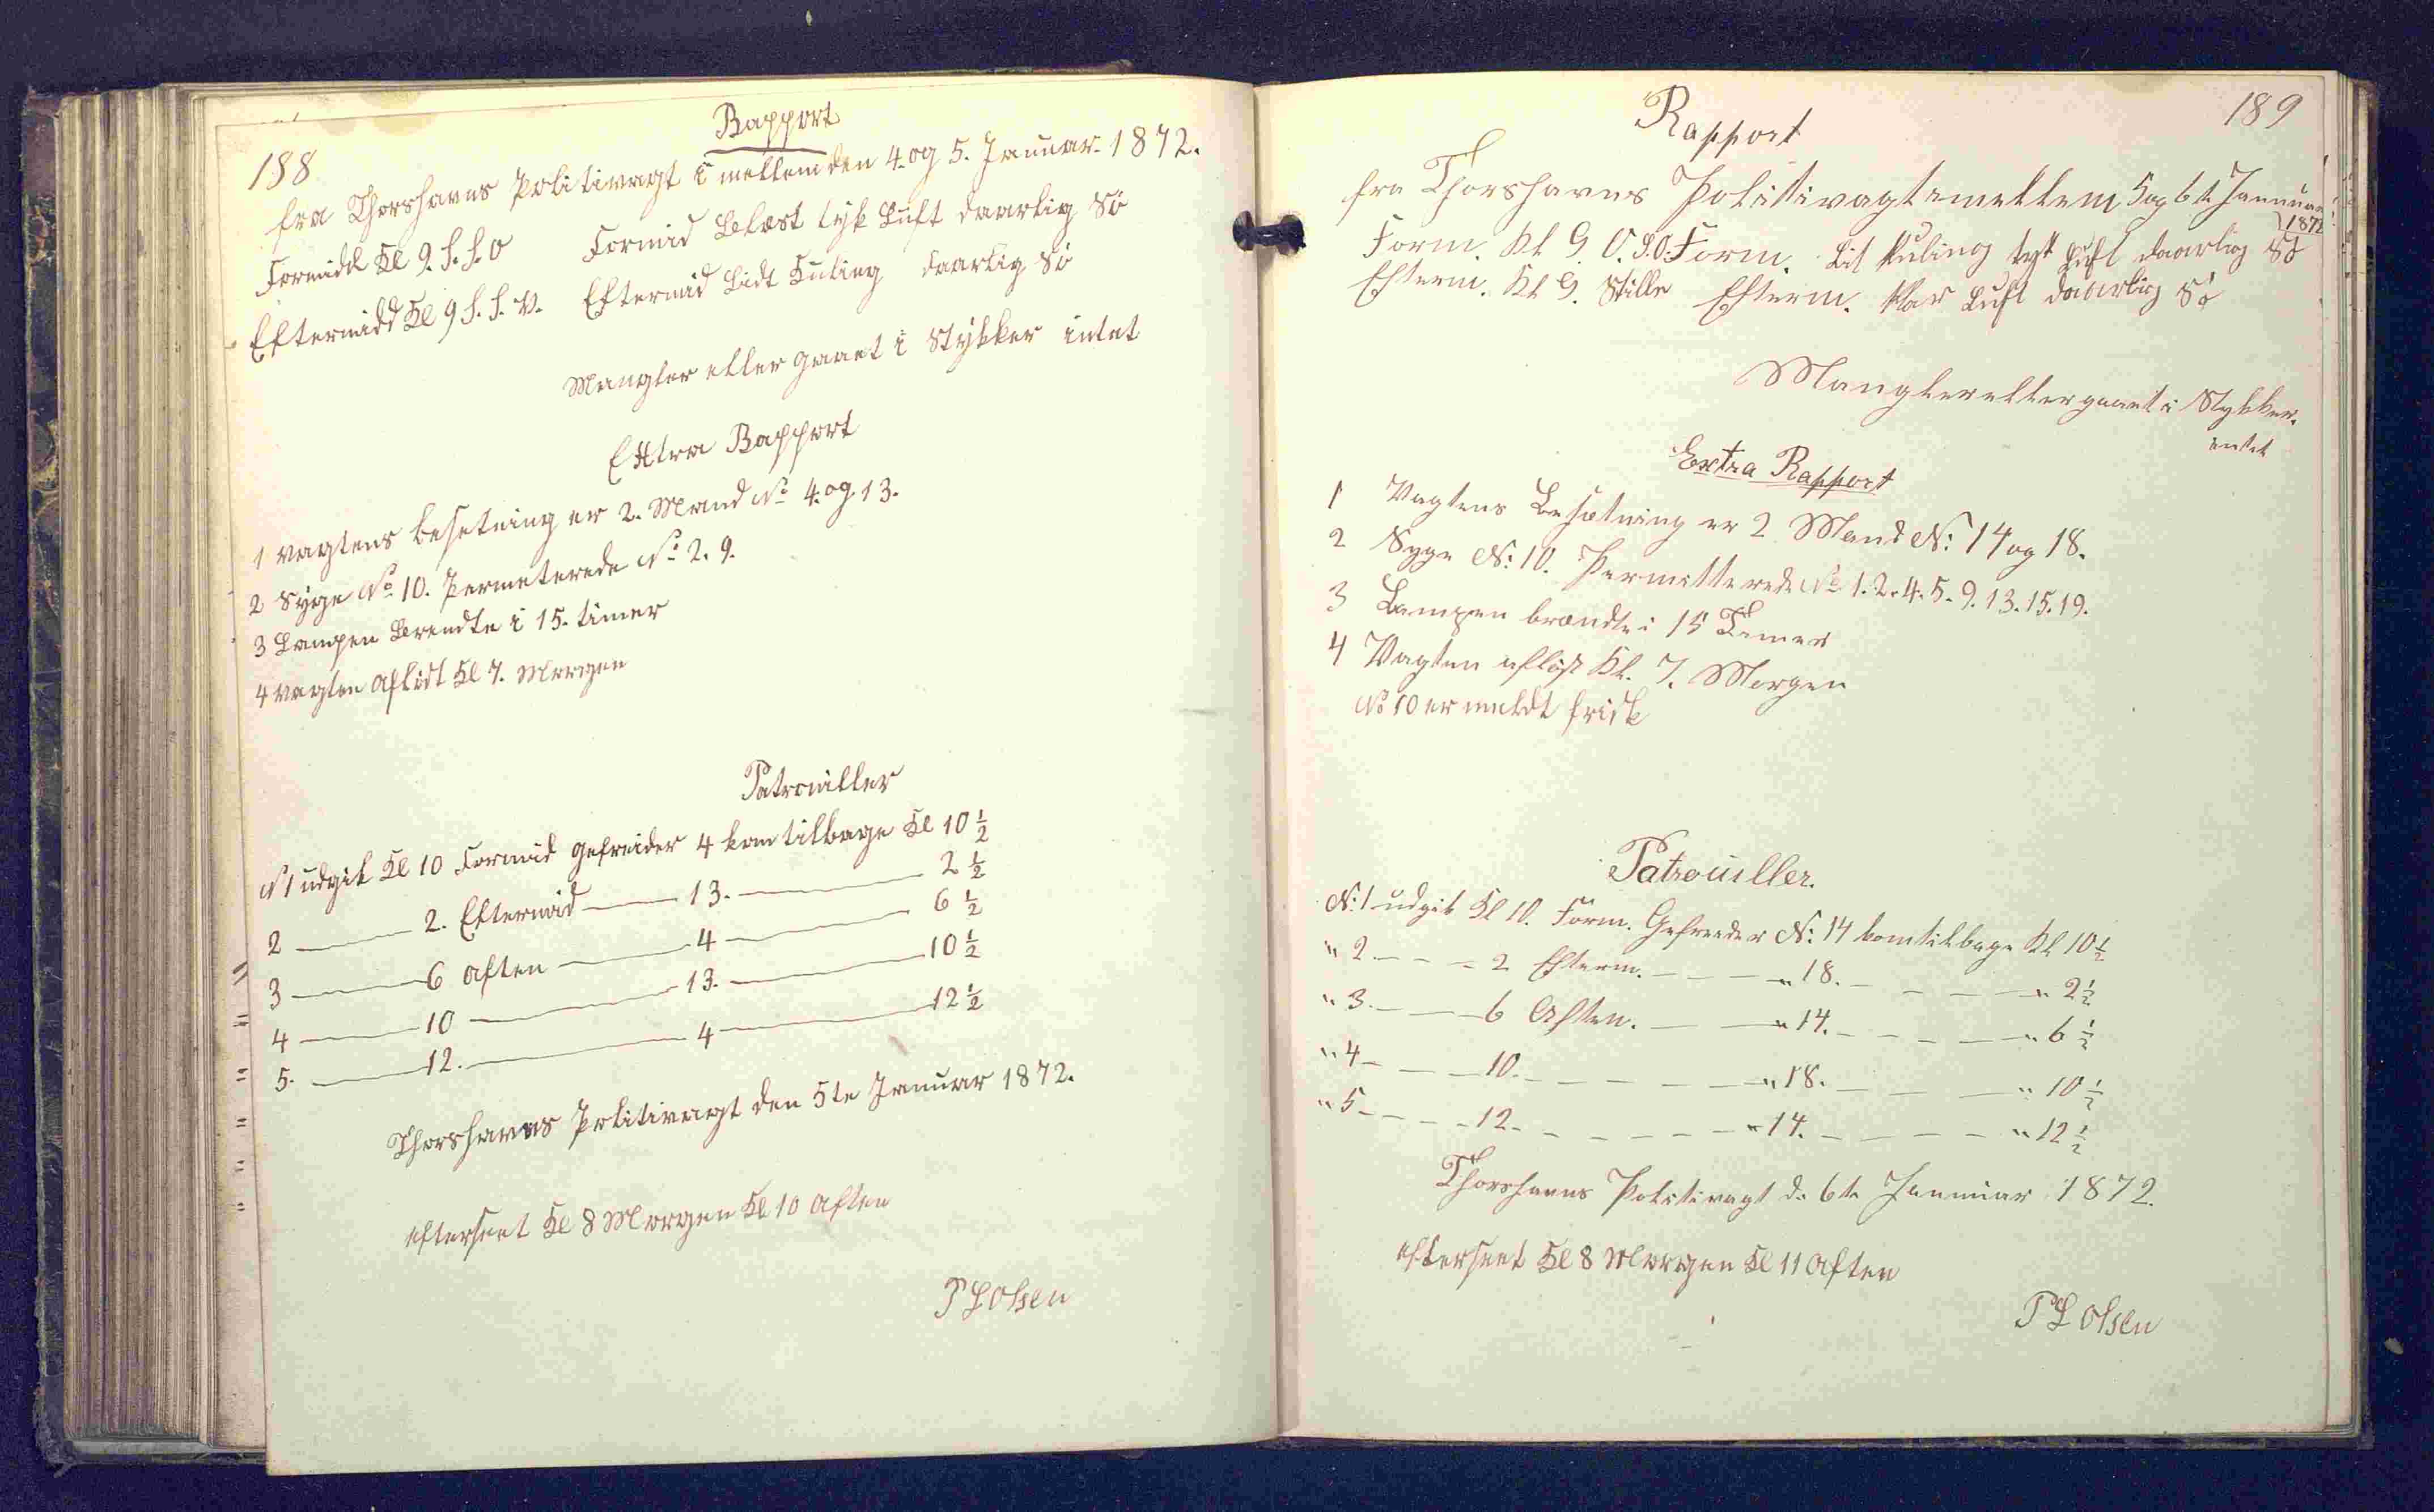 188
Rapport
fra Thorshavns Politivagt i mellem den 4. og 5. Januar 1872.
Formidd Kl 9. S. S. O Formid Blæst tyk Luft daarlig Sö
Eftermidd Kl 9 S. S. V. Eftermid Lidt Kuling daarlig Sö
Mangler eller gaaet i Stykker intet
Extra Rapport
1 vagtens besetning er 2. Mand No 4. og 13.
2 Syge No 10. Permeterede No 2. 9.
3 Lampen Brendte i 15. timer
4 vagten Aflöst Kl 7. Morgen
Patrouiller
N 1 udgik Kl 10 Formid gefreider 4 kom tilbage Kl 10 ½
2 — 2. Eftermid — 13. — 2 ½
3 — 6 Aften — 4 — 6 ½
4 — 10 — 13. — 10 ½
5. — 12. — 4 — 12 ½
Thorshavns Politivagt den 5te Januar 1872.
efterseet Kl 8 Morgen Kl 10 Aften
P L Olsen
189
Rapport
fra Thorshavns Politivagt imellem 5 og 6te Januuar
1872
Form. Kl 9. O. S. O. Form. Lit Kuling tyk Luft daarlig Sö
Efterm. Kl 9. Stille Efterm. Klar Luft daarlig Sö
Mangler eller gaaet i Stykker.
intet
Extra Rapport
1 Vagtens Besætning er 2 Mand N: 14 og 18.
2 Syge N: 10. Permitterede No 1. 2. 4. 5. 9. 13. 15. 19.
3 Lampen brændte i 15 Timer
4 Vagten aflöst Kl. 7. Morgen
No 10 er meldt frisk
Patrouiller.
N: 1 udgik Kl 10. Form. Gefreeder N: 14 kom tilbage Kl 10 ½
" 2. — — — 2 Efterm. — — — " 18. — — — — " 2 ½
" 3. — — — 6 Aften. — — " 14. — — — — " 6 ½
" 4 — — — 10. — — — — — " 18. — — — — " 10 ½
" 5 — — — 12. — — — — — " 14. — — — — " 12 ½
Thorshavns Politivagt d. 6te Januuar 1872.
efterseet Kl 8 Morgen Kl 11 Aften
P L Olsen